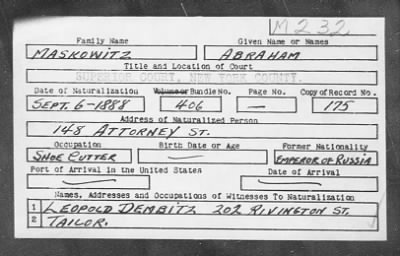 M232
Family Name Given Name or Names
MASKOWITZ ABRAHAM
Title and Location of Court
SUPERIOR COURT, NEW YORK COUNTY.
Date of Naturalization Volume or Bundle No. Page No. Copy of Record No.
SEPT. 6-1888 406 — 175
Address of Naturalized Person
148 ATTORNEY ST.
Occupation Birth Date or Age Former Nationality
SHOE CUTTER EMPEROR OF RUSSIA
Port of Arrival in the United States Date of Arrival
Names, Addresses and Occupations of Witnesses To Naturalization
1 LEOPOLD DEMBITZ 202 RIVINGTON ST.
2 TAILOR.